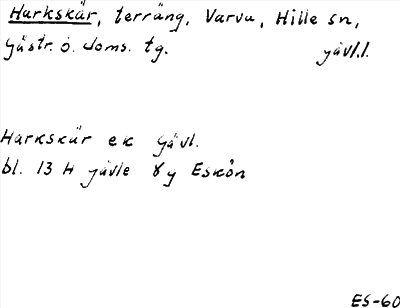 Harkskär, terräng, Varva, Hille sn,
Gästr. ö. doms. tg. gävl.l.
Harkskär ek Gävl.
bl. 13 H gävle 8g Eskön
ES-60